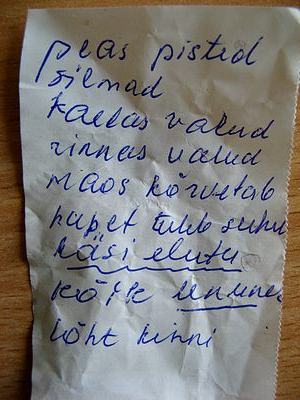 peas pisted
silmad
kaelas valud
rinnas valud
maos kõrvetab
hapet tuleb suhu
käsi elutu
kõik ununeb
kõht kinni